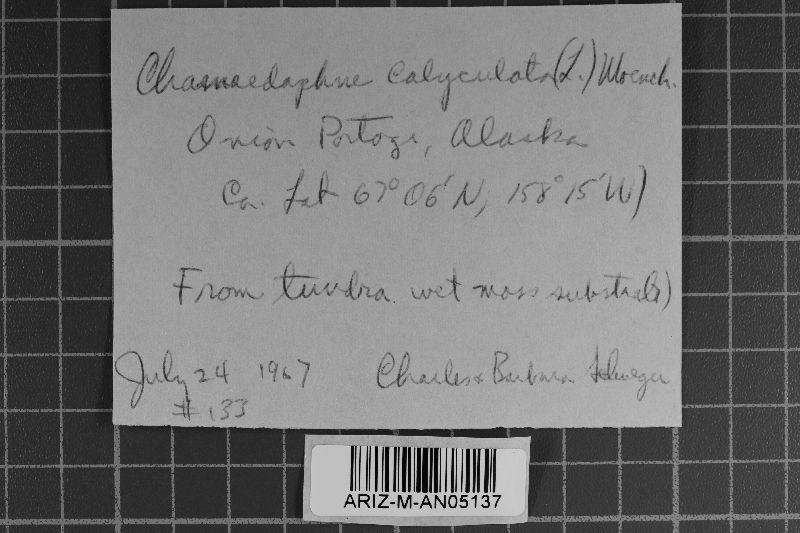 Chamaedaphne calyculata (L.) Moench.
Onion Portage, Alaska
Ca. Lat 67° 06' N, 158° 15' W)
From tundra wet moss substrate)
July 24 1967 Charles & Barbara Schweger
# 133
ARIZ-M-AN05137